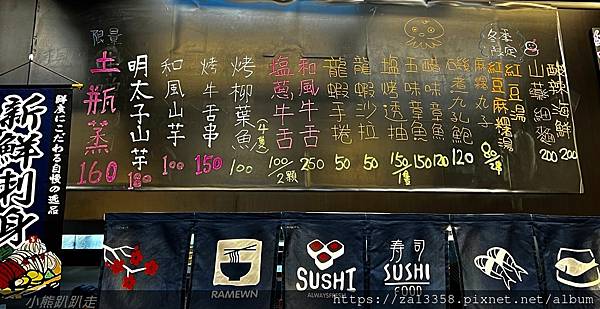 酸辣海鮮 200
山藥細麵 200
冬季限定
紅豆湯
紅豆麻糬湯
麻糬丸子
磯煮九孔鮑 120
醋味章魚 120
五味章魚 150
塩烤透抽 150/1隻
龍蝦沙拉 50
龍蝦手捲 50
和風牛舌 250
塩蔥牛舌 100/2顆
烤柳葉魚 100
烤牛舌串 150
和風山芋 100
明太子山芋 180
限量
土瓶蒸 160
鮮度にこだわる自慢の逸品
新鮮刺身
RAMEWN
SUSHI
ALWAYSFRESH
寿司
SUSHI
FOOD
小熊趴趴走
https://za13358.pixnet.net/album